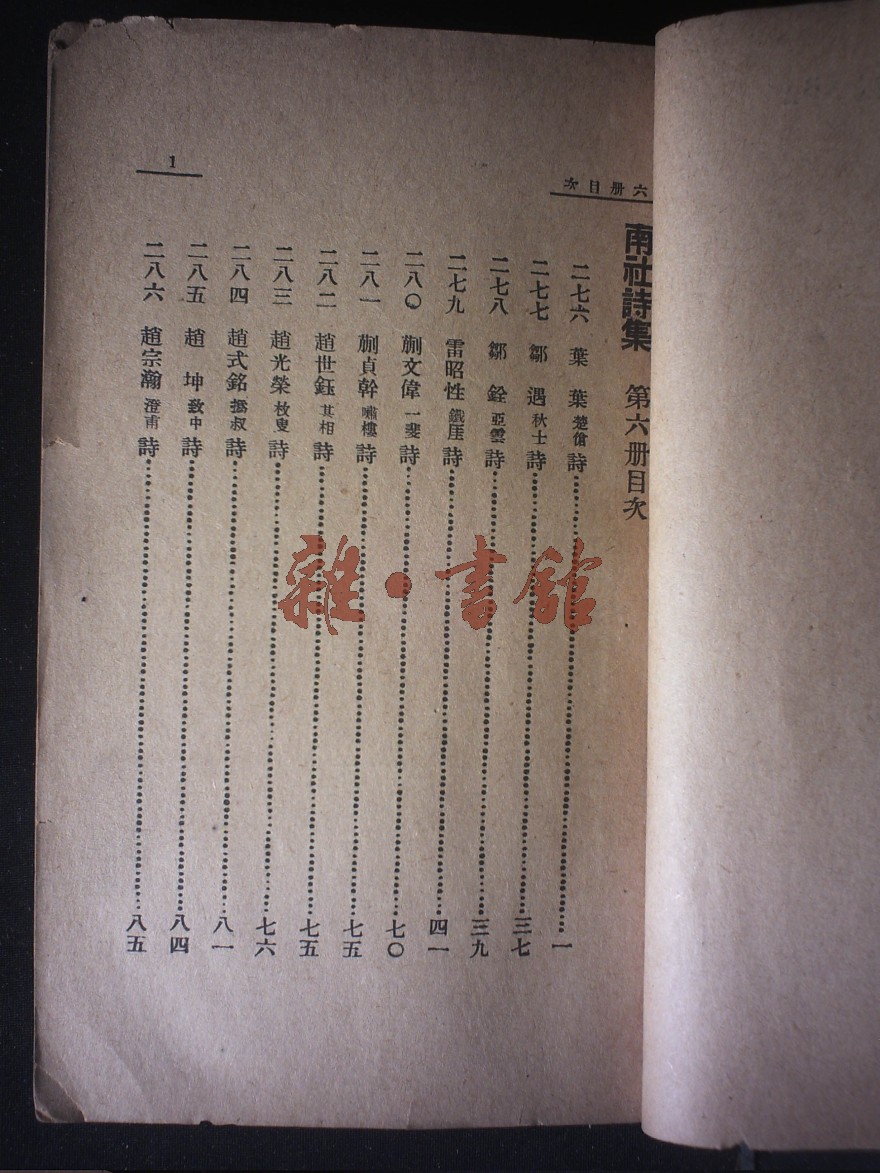 六册目次
南社詩集 第六册目次
二七六 葉葉 楚傖 詩 一
二七七 鄒遇 秋士 詩 三七
二七八 鄒銓 亞雲 詩 三九
二七九 雷昭性 鐵厓 詩 四一
二八〇 蒯文偉 一斐 詩 七〇
二八一 蒯貞幹 嘯樓 詩 七五
二八二 趙世鈺 其相 詩 七五
二八三 趙光榮 枚叟 詩 七六
二八四 趙式銘 詩 八一
二八五 趙坤 致中 詩 八四
二八六 趙宗瀚 澄甫 詩 八五
1
雜·書館